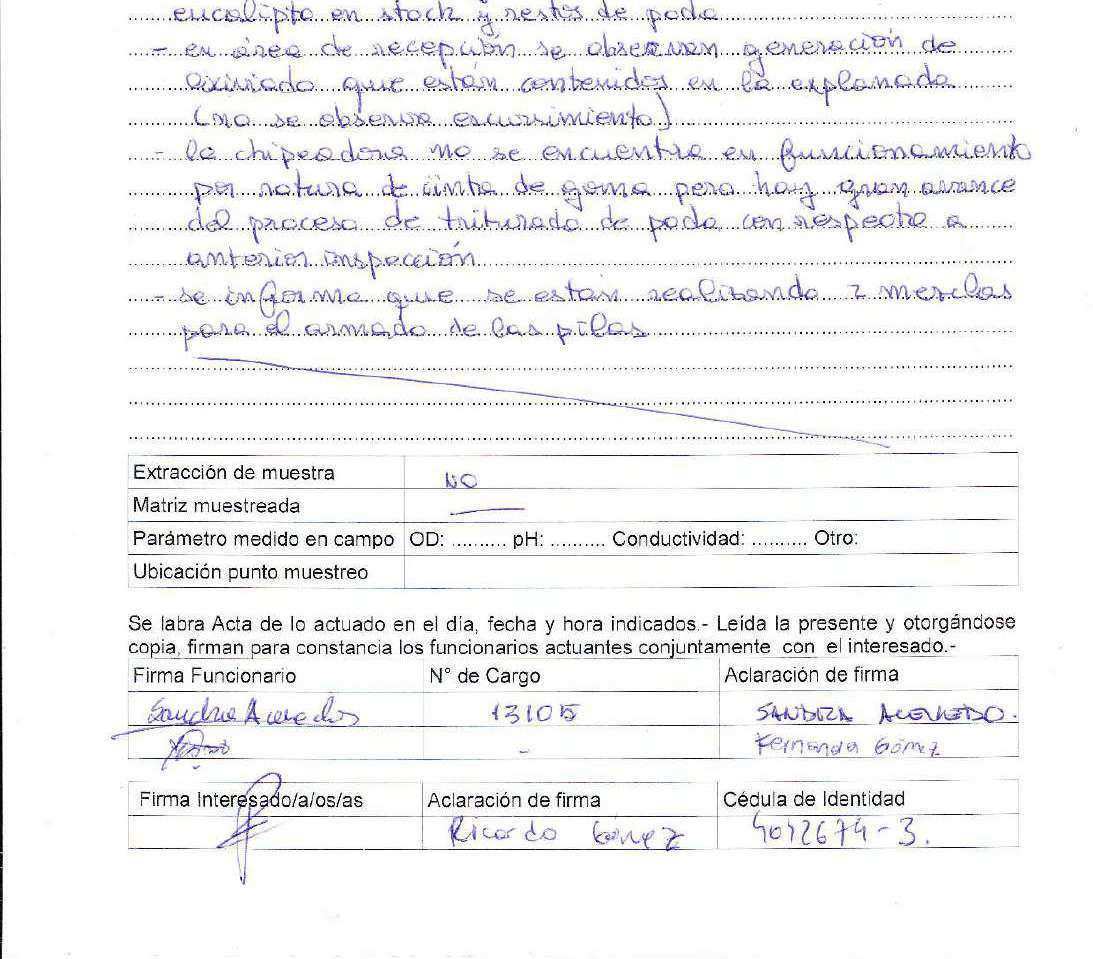 eucalipto en stock y restos de poda
- en área de recepción se observan generación de
lixiviado que están contenidos en la explanada
(no se observa escurrimiento)
- la chipeadora no se encuentra en funcionamiento
por rotura de cinta de goma pero hay gran avance
del proceso de triturado de poda con respecto a
anterior inspección
- se informa que se están realizando 2 mezclas
para el armado de las pilas
Extracción de muestra NO
Matriz muestreada
Parámetro medido en campo OD: .......... pH: .......... Conductividad: .......... Otro:
Ubicación punto muestreo
Se labra Acta de lo actuado en el día, fecha y hora indicados.- Leída la presente y otorgándose
copia, firman para constancia los funcionarios actuantes conjuntamente con el interesado.-
Firma Funcionario N° de Cargo Aclaración de firma
Sandra Acevedo 13105 SANDRA ACEVEDO.
- Fernanda Gómez
Firma Interesado/a/os/as Aclaración de firma Cédula de Identidad
Ricardo Gómez